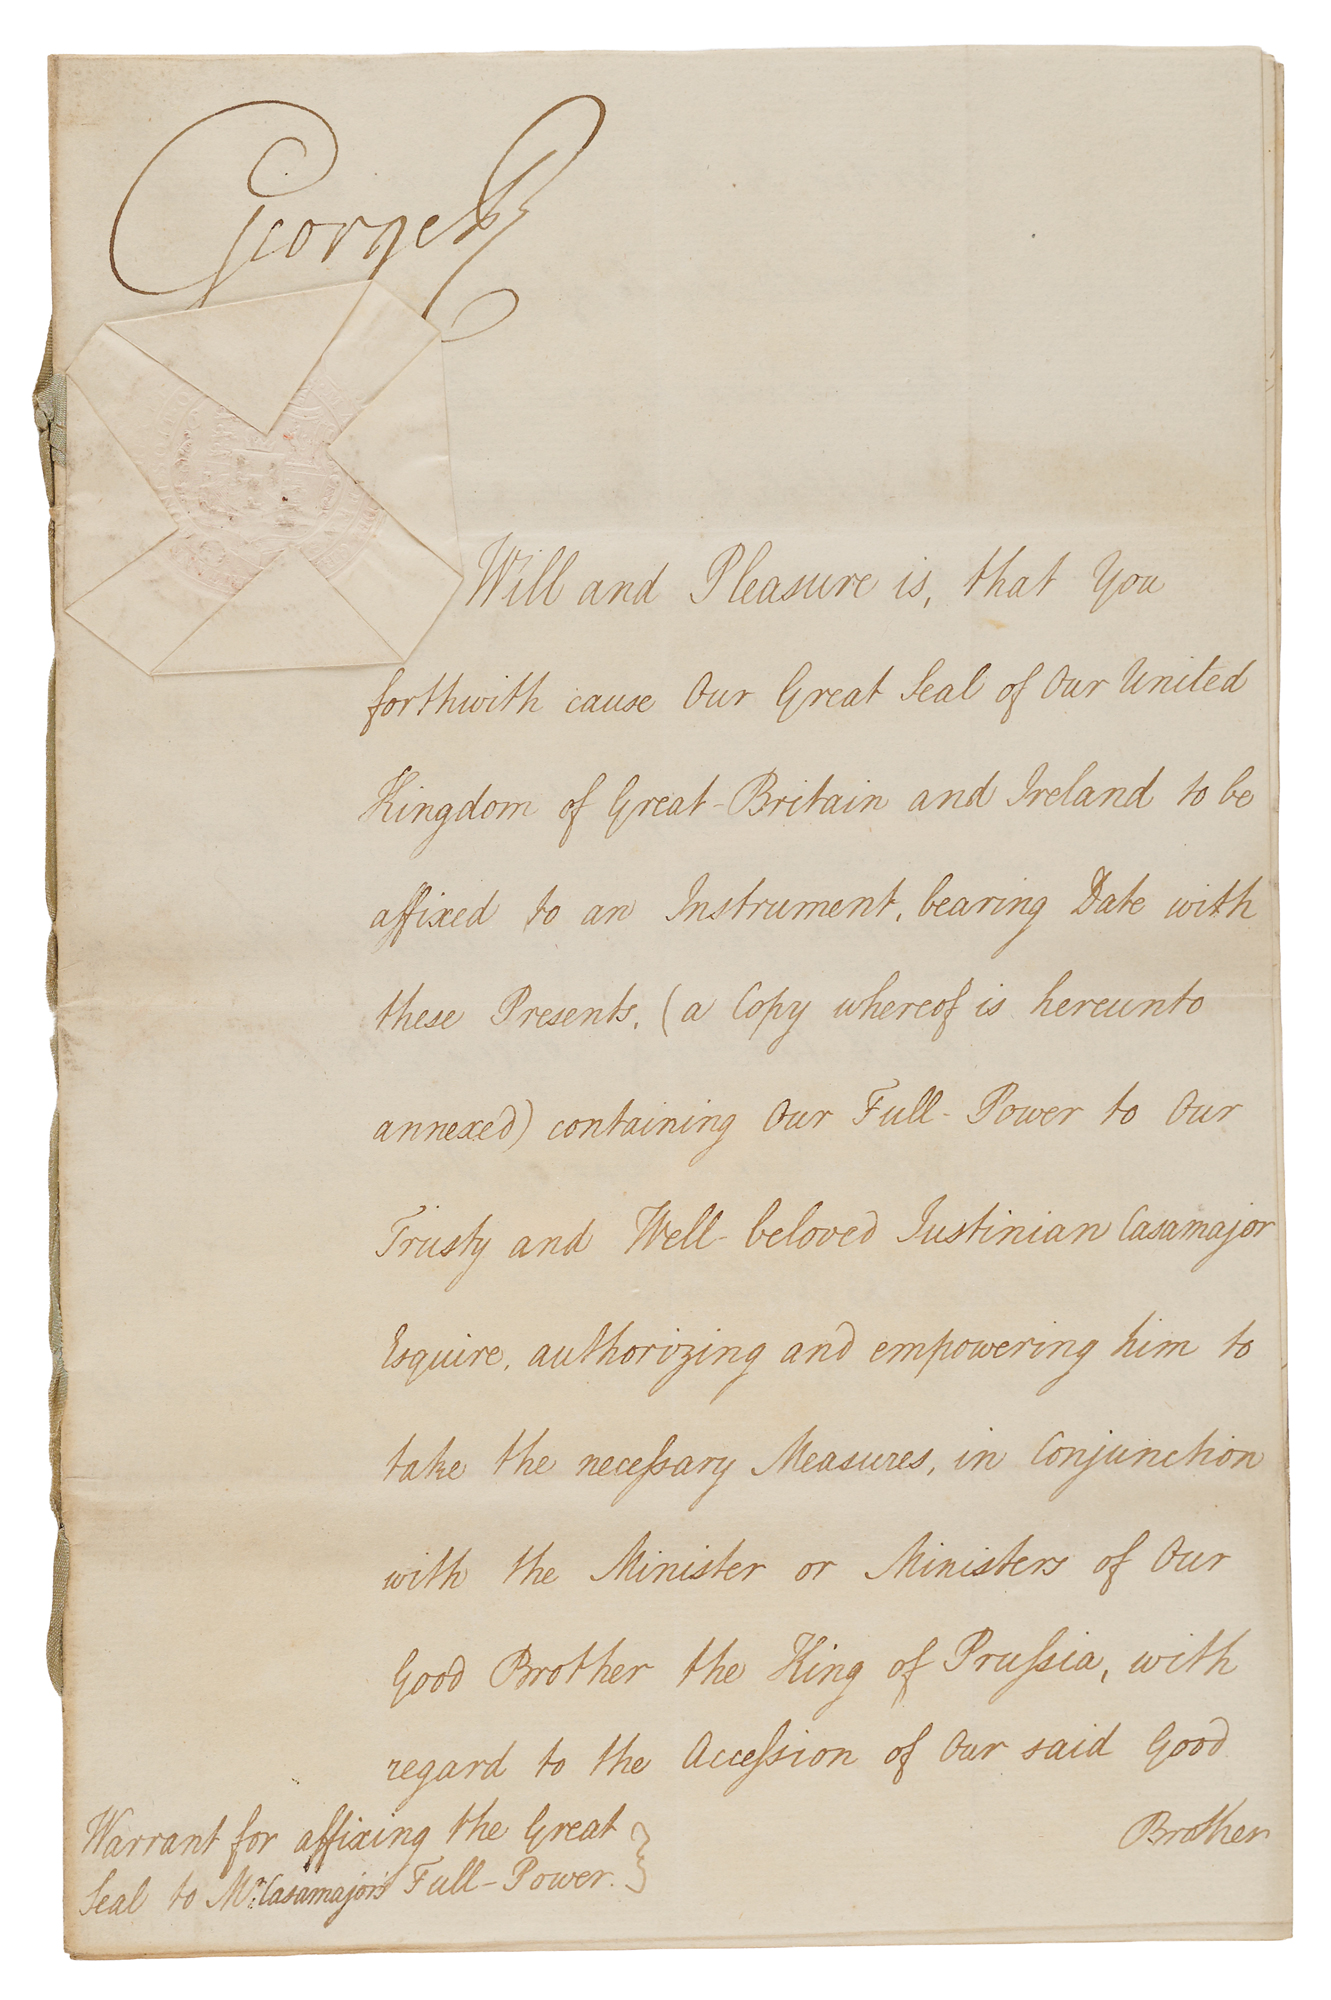 George R
Will and Pleasure is, that You
forthwith cause Our Great Seal of Our United
Kingdom of Great-Britain and Ireland to be
affixed to an Instrument, bearing Date with
these Presents, (a Copy whereof is hereunto
annexed) containing Our Full-Power to Our
Trusty and Well-beloved Justinian Casamajor
Esquire, authorizing and empowering him to
take the neceſsary Measures, in Conjunction
with the Minister or Ministers of Our
Good Brother the King of Pruſsia, with
regard to the Acceſsion of Our said Good
Brother
Warrant for affixing the Great
Seal to Mr. Casamajor's Full-Power.